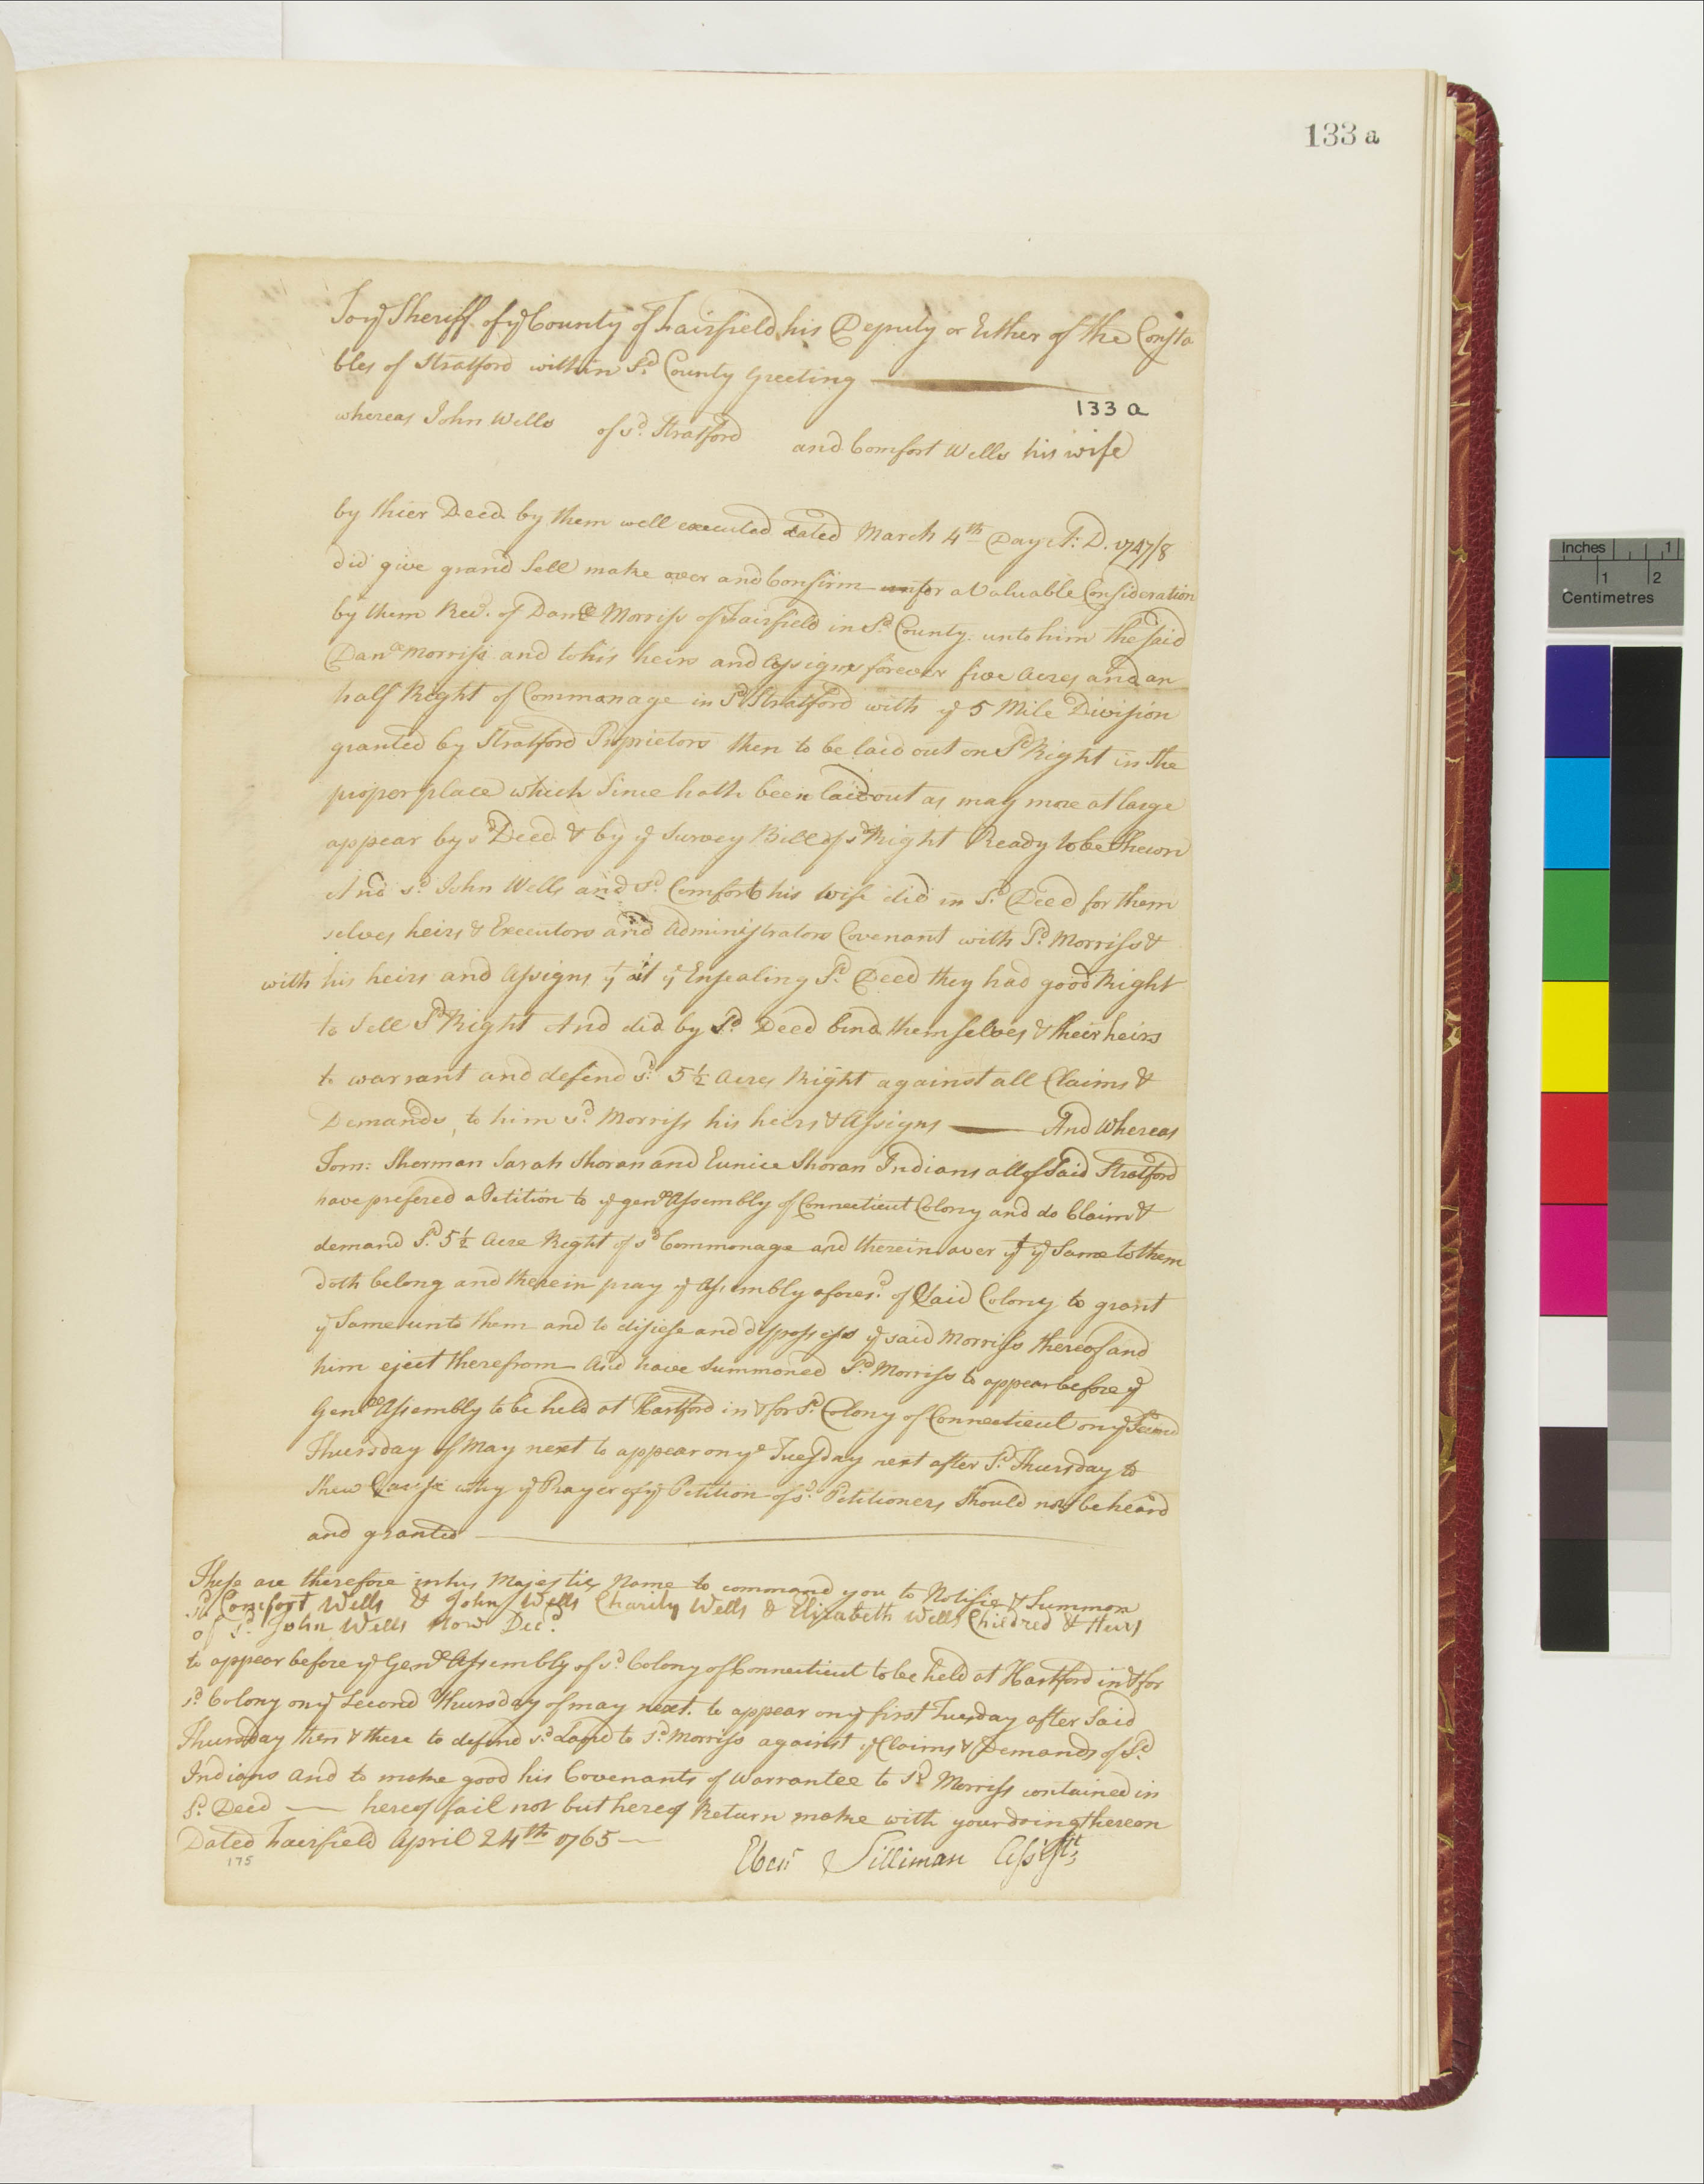 133 a
To ye Sheriff of ye County of Fairfield his Deputy or Either of the Consta
bles of Stratford within Sd. County Greeting
133 a
whereas John Wells of sd. Stratford and Comfort Wells his wife
by thier Deed by them well executed dated March 4th Day A: D. 1747/8
did give grand Sell make over and Confirm for a Valuable Consideration
by them Recd. of Danll Morriss of Fairfield in Sd. County. unto him the Said
Danll Morriss and to his heirs and Assigns forever five Acres and an
half Right of Commonage in Sd Stratford with ye 5 Mile Division
granted by Stratford Proprietors then to be laid out on Sd Right in the
proper place which Since hath been laid out as may more at large
appear by sd Deed & by ye Survey Bill of sd Right Ready to be Shewn
And sd John Wells and sd. Comfort his Wife did in Sd. Deed for them
selves heirs & Executors and Administrators Covenant with Sd. Morriss &
with his heirs and Assigns yt at ye Ensealing Sd. Deed they had good Right
to Sell Sd Right And did by Sd Deed bind themselves & their heirs
to warrant and defend sd. 5½ Acres Right against all Claims &
Demands, to him sd. Morriss his heirs & Assigns And Whereas
Tom: Sherman Sarah Shoran and Eunice Shoran Indians all of Said Stratford
have prefered a Petition to ye genll Assembly of Connecticut Colony and do Claim &
demand Sd. 5½ Acre Right of sd Commonage and therein aver yt ye Same to them
doth belong and therein pray ye Assembly aforesd. of Said Colony to grant
ye Same unto them and to disiese and disposses ye said Morriss thereof and
him eject therefrom And have Summoned Sd. Morriss to appear before ye
Genll Assembly to be held at Hartford in & for Sd. Colony of Connecticut on ye Second
Thursday of May next to appear on ye Tuesday next after Sd. Thursday to
Shew Cause why ye Prayer of ye Petition of sd. Petitioners Should not be heard
and granted
These are therefore in his Majesties Name to command you to Notifie & Summon
sd. Comfort Wells & John Wells Charity Wells & Elizabeth Wells Childred & Heirs
of sd. John Wells Now Decd.
to appear before ye Genll Assembly of sd. Colony of Connecticut to be held at Hartford in & for
sd. Colony on ye Second Thursday of may next. to appear on ye first Tuesday after Said
Thursday then & there to defend sd. Land to sd. Morriss against ye Claims & Demands of Sd.
Indians and to make good his Covenants of Warrantee to Sd Morriss contained in
Sd. Deed hereof fail not but hereof Return make with your doing thereon
Dated Fairfield April 24th 1765
175
Ebenr Silliman Assistt
Inches 1
1 2
Centimetres